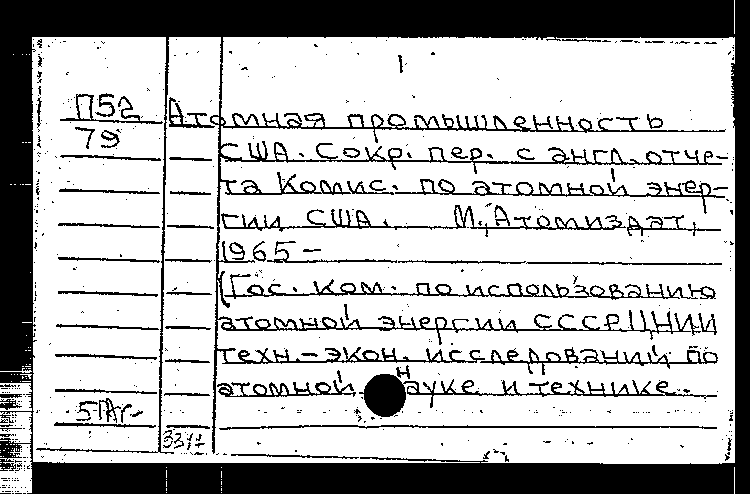 1
П52 Атомная промышленность
79 США. Сокр. пер. с англ. отче-
та Комис. по атомной энер-
гии США. М., Атомиздат,
1965 –
(Гос. ком. по использованию
атомной энергии СССР. ЦНИИ
техн.-экон. исследований по
атомной науке и технике.